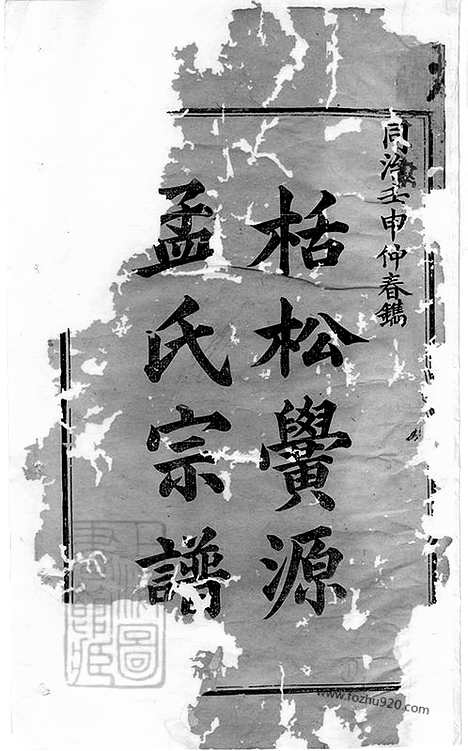 同治壬申仲春鐫
栝松黌源
孟氏宗譜
www.fozhu920.com